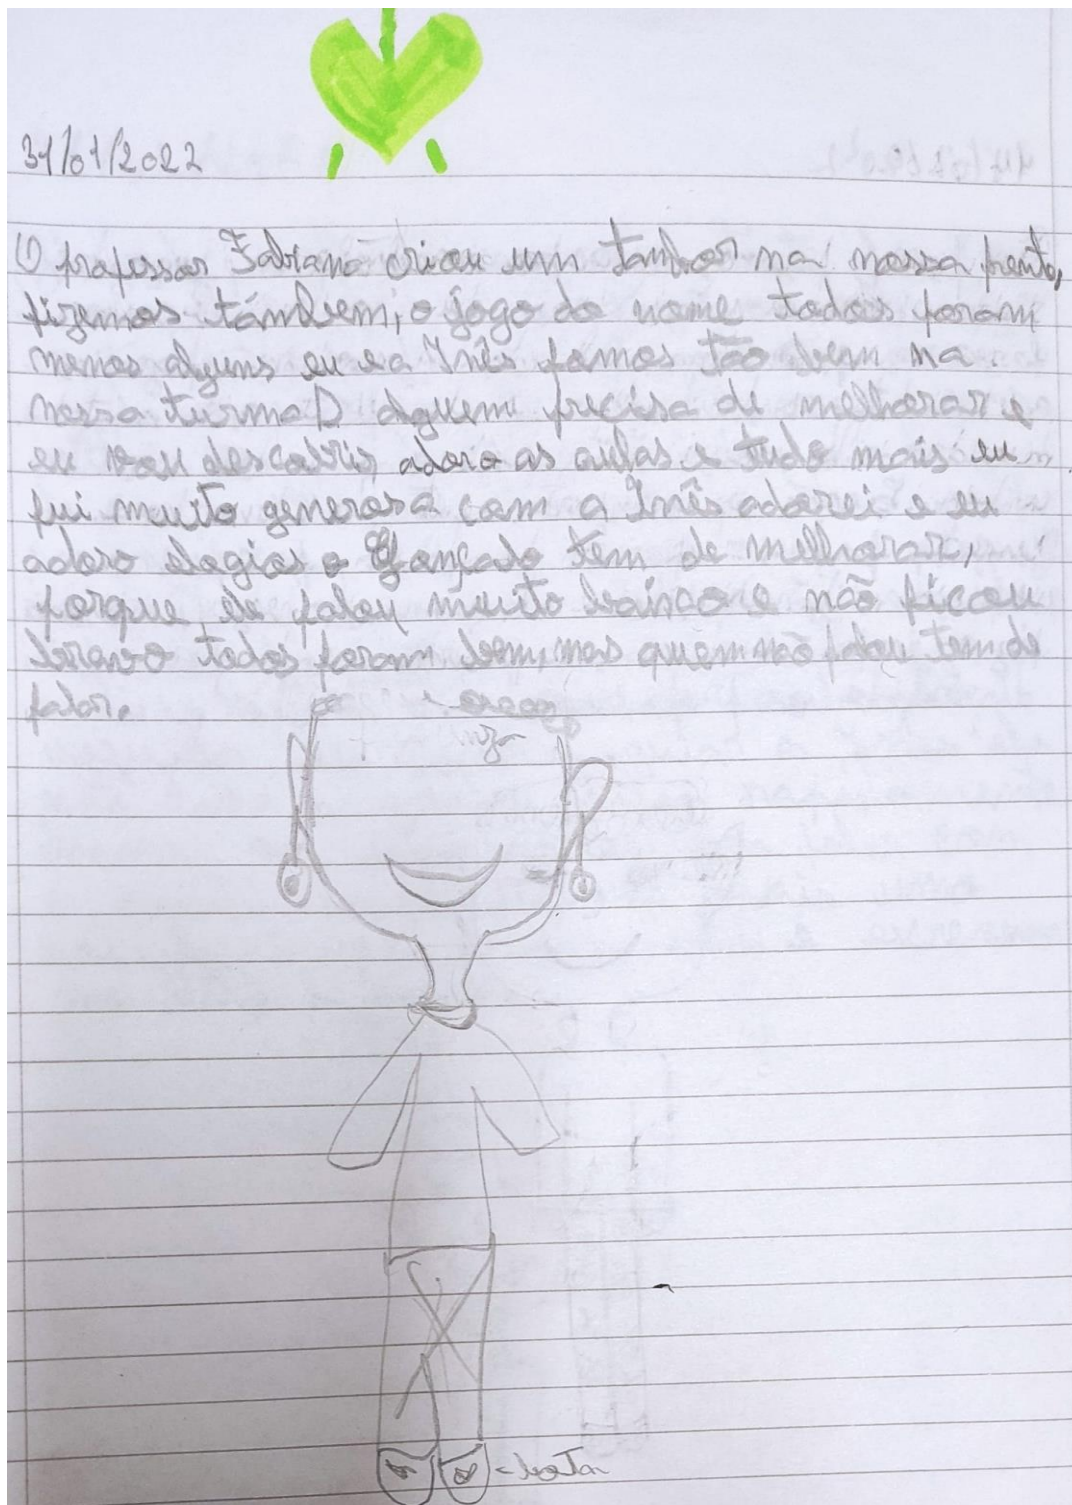 31/01/2022
O professor Fabiano criou um tambor na nossa frente,
fizemos támbem, o jogo do nome todos foram
menos alguns eu e a Inês fomos tão bem na
nossa turma D alguem precisa de melhorar e
eu vou descobrir, adoro as aulas e tudo mais eu
fui muito generosa com a Inês adorei e eu
adoro elogios o Gonçalo tem de melhorar,
porque ele falou muito baixo e não ficou
bravo todos foram bem, mas quem não falou tem de
falar.
- bota